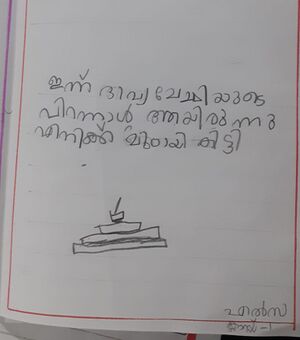 ഇന്ന് ദിവ്യ ചേച്ചിയുടെ
പിറന്നാൾ ആയിരുന്നു
എനിക്ക് മിഠായി കിട്ടി
എൽസ
ക്ലാസ്-1